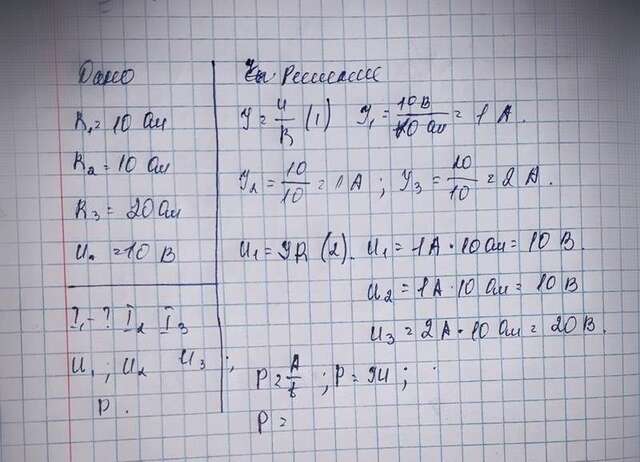 Дано
Решение
R₁ = 10 Ом
R₂ = 10 Ом
R₃ = 20 Ом
U₀ = 10 В
I₁ - ? I₂ I₃
U₁ ; U₂ U₃ ;
P.
У = U/R (1) У₁ = 10 В/10 Ом = 1 А.
У₂ = 10/10 = 1 А ; У₃ = 20/10 = 2 А.
U₁ = УR (2). U₁ = 1А · 10 Ом = 10 В.
U₂ = 1А · 10 Ом = 10 В
U₃ = 2А · 10 Ом = 20 В.
P = A/t ; P = УU ;
P =